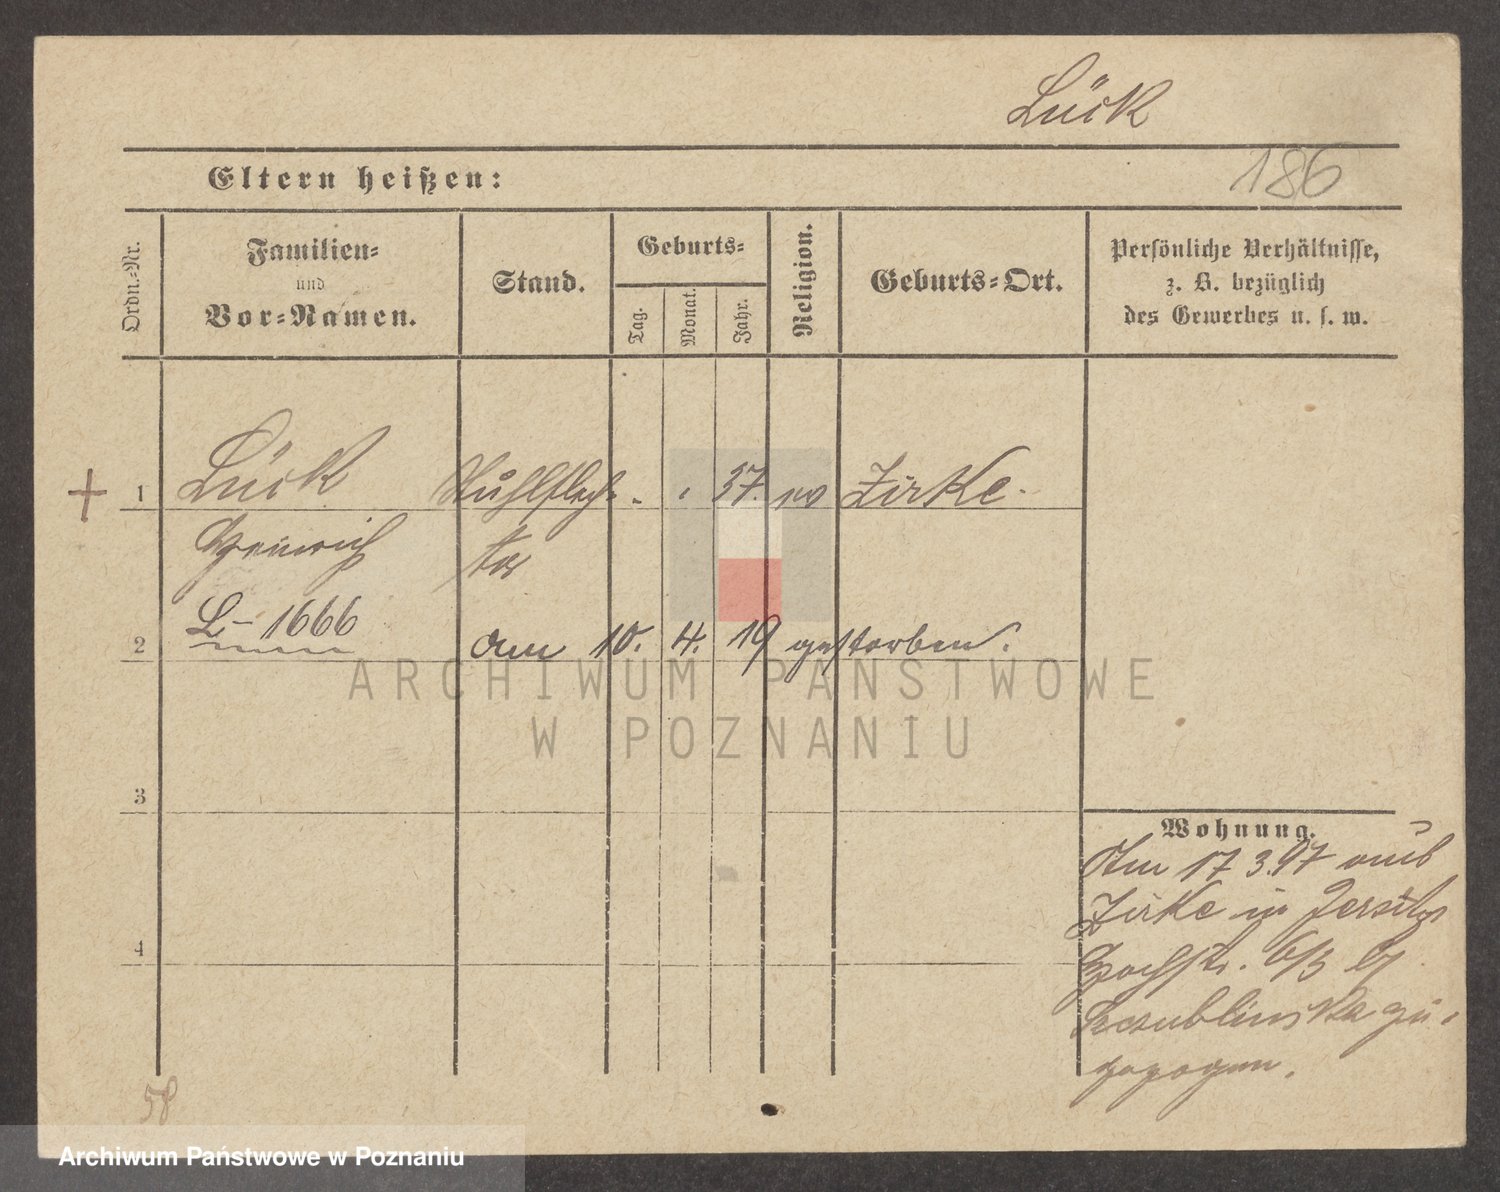 Lück
186
Eltern heißen:
Ordn.-Nr.
Familien-
und
Vor-Namen.
Stand.
Geburts-
Tag.
Monat.
Jahr.
Religion.
Geburts-Ort.
Persönliche Verhältnisse,
z. B. bezüglich
des Gewerbes u. s. w.
+ 1 Lück Stuhlflech- 37. ev Zirke.
Heinrich ter
L- 1666
2 am 10. 4. 19 gestorben.
ARCHIWUM PAŃSTWOWE
W POZNANIU
3
Wohnung.
Am 17 3.97 aus
Zirke in Jersitz
4
Hochstr. 6/3 bei
zu-
gezogen.
58
Archiwum Państwowe w Poznaniu